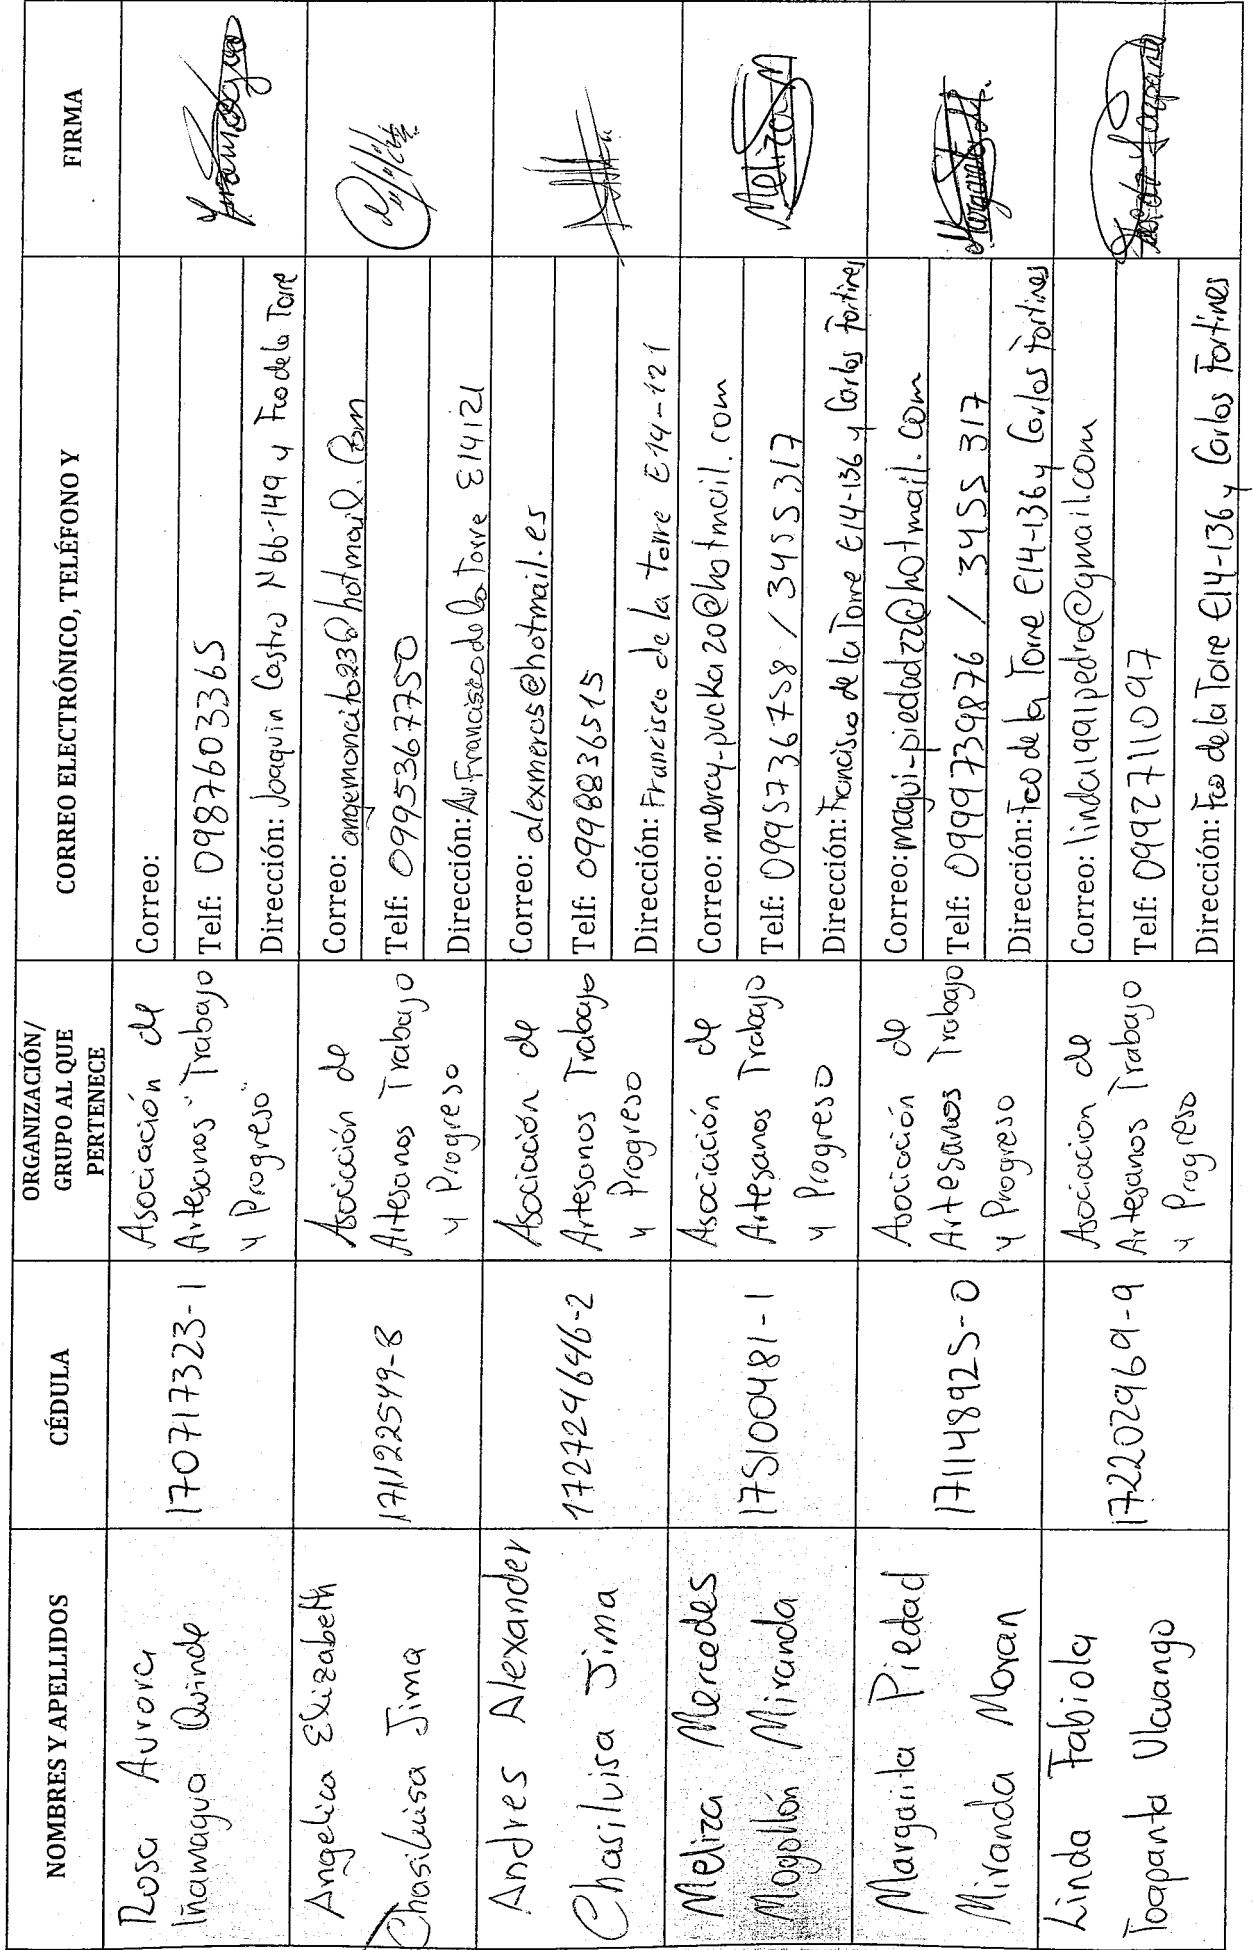 NOMBRES Y APELLIDOS
CÉDULA
ORGANIZACIÓN/
GRUPO AL QUE
PERTENECE
CORREO ELECTRÓNICO, TELÉFONO Y
FIRMA
Rosa Aurora
Iñamagua Quinde
170717323-1
Asociación de
Artesanos "Trabajo
y Progreso"
Correo:
Telf: 0987603365
Dirección: Joaquin Castro N66-149 y Fco de la Torre
Angelica Elizabeth
Chasiluisa Jima
171122549-8
Asociación de
Artesanos Trabajo
y Progreso
Correo: angemoncito236@hotmail.com
Telf: 0995367750
Dirección: Av Francisco de la Torre E14121
Andres Alexander
Chasiluisa Jima
172724646-2
Asociación de
Artesanos Trabajo
y Progreso
Correo: alexmeros@hotmail.es
Telf: 0998836515
Dirección: Francisco de la torre E14-121
Meliza Mercedes
Mogollón Miranda
175100481-1
Asociación de
Artesanos Trabajo
y Progreso
Correo: mercy-pucka20@hotmail.com
Telf: 0995736758 / 3455317
Dirección: Francisco de la Torre E14-136 y Carlos Fortines
Meliza M
Margarita Piedad
Miranda Moran
171148925-0
Asociación de
Artesanos Trabajo
y Progreso
Correo: maqui-piedadzz@hotmail.com
Telf: 0999739876 / 3455317
Dirección: Fco de la Torre E14-136 y Carlos Fortines
Margarita M.
Linda Fabiola
Toapanta Ulcuango
172202969-9
Asociacion de
Artesanos Trabajo
y Progreso
Correo: linda1991pedro@gmail.com
Telf: 0992711097
Dirección: Fco de la Torre E14-136 y Carlos Fortines